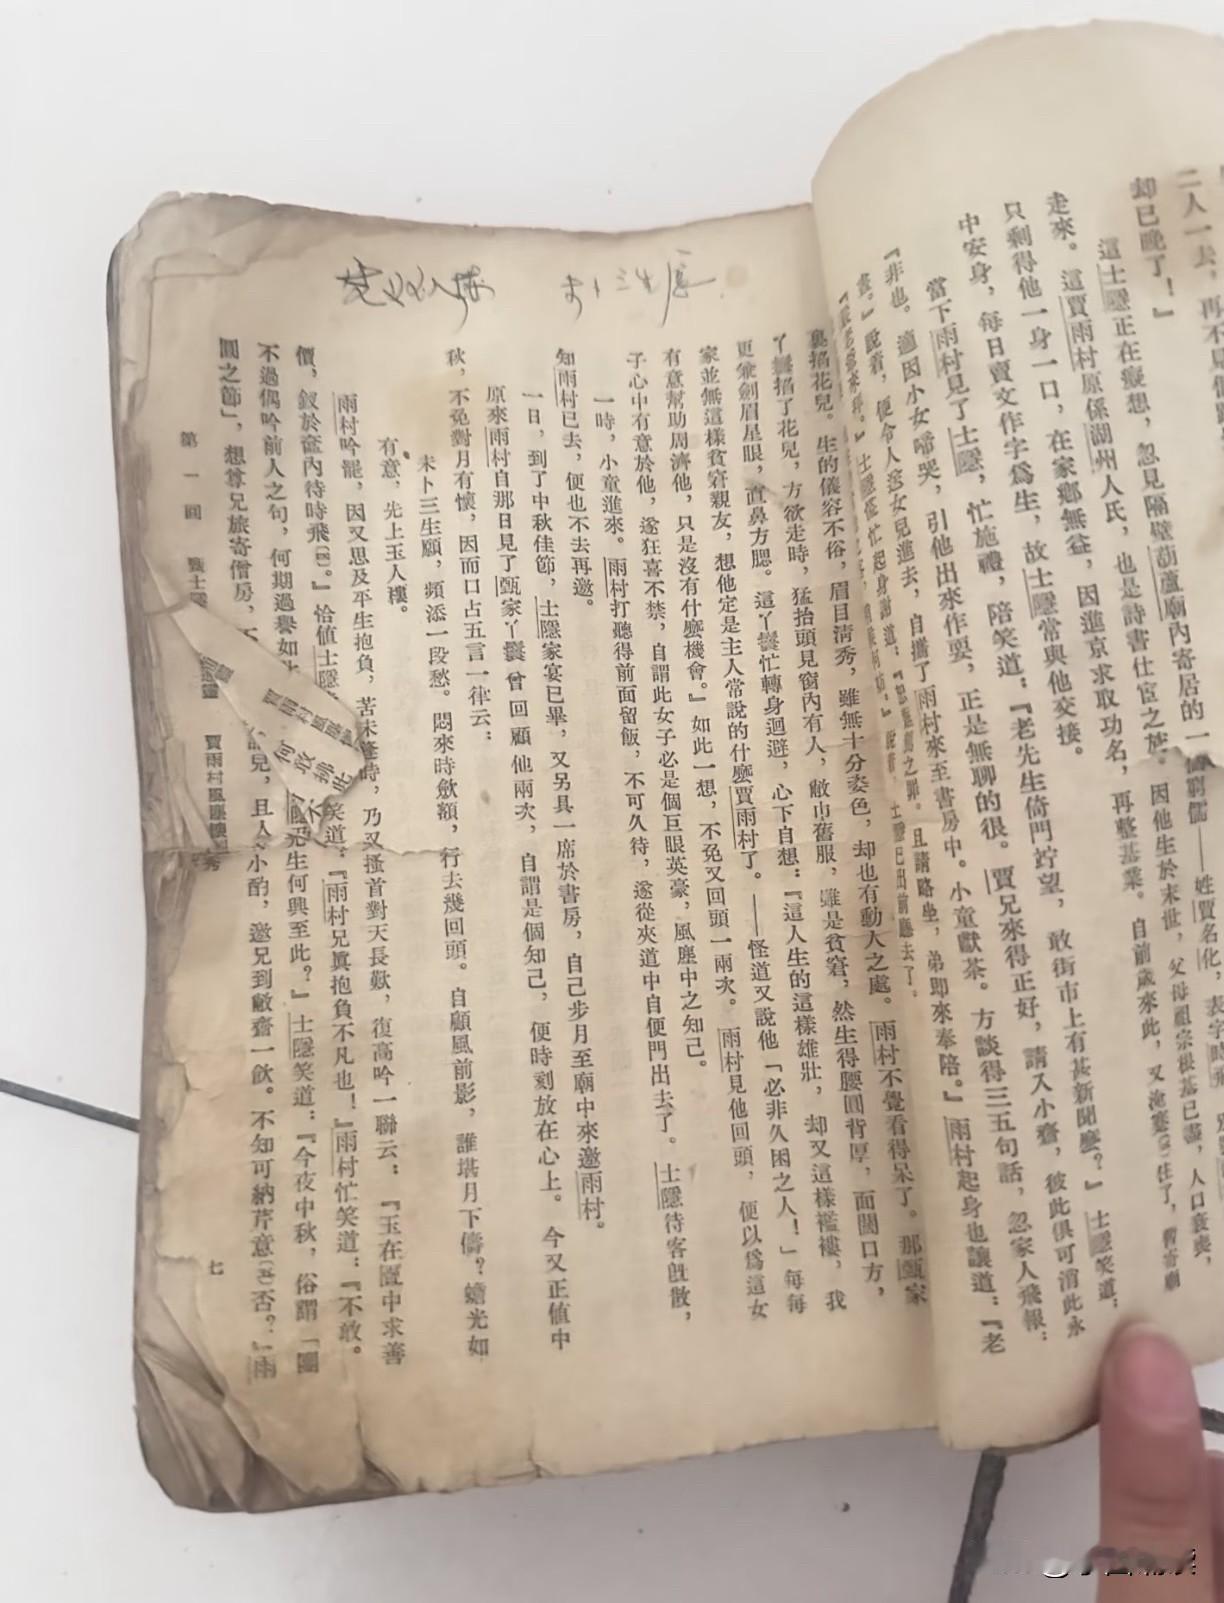 二人一去，再不見個
却已晚了！』
這士隱正在癡想，忽見隔壁葫蘆廟內寄居的一個窮儒——姓賈名化，表字時飛，
走來。這賈雨村原係湖州人氏，也是詩書仕宦之族。因他生於末世，父母祖宗根基已盡，人口衰喪，
只剩得他一身一口，在家鄉無益，因進京求取功名，再整基業。自前歲來此，又淹蹇住了，暫寄廟
中安身，每日賣文作字爲生，故士隱常與他交接。
當下雨村見了士隱，忙施禮，陪笑道：『老先生倚門竚望，敢街市上有甚新聞麽？』士隱笑道：
『非也。適因小女啼哭，引他出來作耍，正是無聊的很。賈兄來得正好，請入小齋，彼此俱可消此永
晝。』說着，便令人送女兒進去，自攜了雨村來至書房中。小童獻茶。方談得三五句話，忽家人飛報：
『嚴老爺來拜。』士隱慌忙起身謝道：『恕誑駕之罪。且請略坐，弟即來奉陪。』雨村起身也讓道：『老
士隱已出前廳去了。
裏掐花兒。生的儀容不俗，眉目清秀，雖無十分姿色，却也有動人之處。雨村不覺看得呆了。那甄家
丫鬟掐了花兒，方欲走時，猛抬頭見窗內有人，敝巾舊服，雖是貧窘，然生得腰圓背厚，面闊口方，
更兼劍眉星眼，直鼻方腮。這丫鬟忙轉身迴避，心下自想：『這人生的這樣雄壯，却又這樣襤褸，我
家並無這樣貧窘親友，想他定是主人常說的什麽賈雨村了。——怪道又說他「必非久困之人！」每每
有意幫助周濟他，只是沒有什麽機會。』如此一想，不免又回頭一兩次。雨村見他回頭，便以爲這女
子心中有意於他，遂狂喜不禁，自謂此女子必是個巨眼英豪，風塵中之知己。
一時，小童進來。雨村打聽得前面留飯，不可久待，遂從夾道中自便門出去了。士隱待客旣散，
知雨村已去，便也不去再邀。
一日，到了中秋佳節，士隱家宴已畢，又另具一席於書房，自己步月至廟中來邀雨村。
原來雨村自那日見了甄家丫鬟曾回顧他兩次，自謂是個知己，便時刻放在心上。今又正值中
秋，不免對月有懷，因而口占五言一律云：
未卜三生願，頻添一段愁。悶來時斂額，行去幾回頭。自顧風前影，誰堪月下儔？蟾光如
有意，先上玉人樓。
雨村吟罷，因又思及平生抱負，苦未逢時，乃又搔首對天長歎，復高吟一聯云：『玉在匱中求善
價，釵於奩內待時飛。』恰值士隱笑道：『雨村兄眞抱負不凡也！』雨村忙笑道：『不敢。
不過偶吟前人之句，何期過譽如此先生何興至此？』士隱笑道：『今夜中秋，俗謂「團
圓之節」，想尊兄旅寄僧房，不小酌，邀兄到敝齋一飲。不知可納芹意否？』雨
第一回
賈雨村風塵懷閨秀
七
未卜三生愿